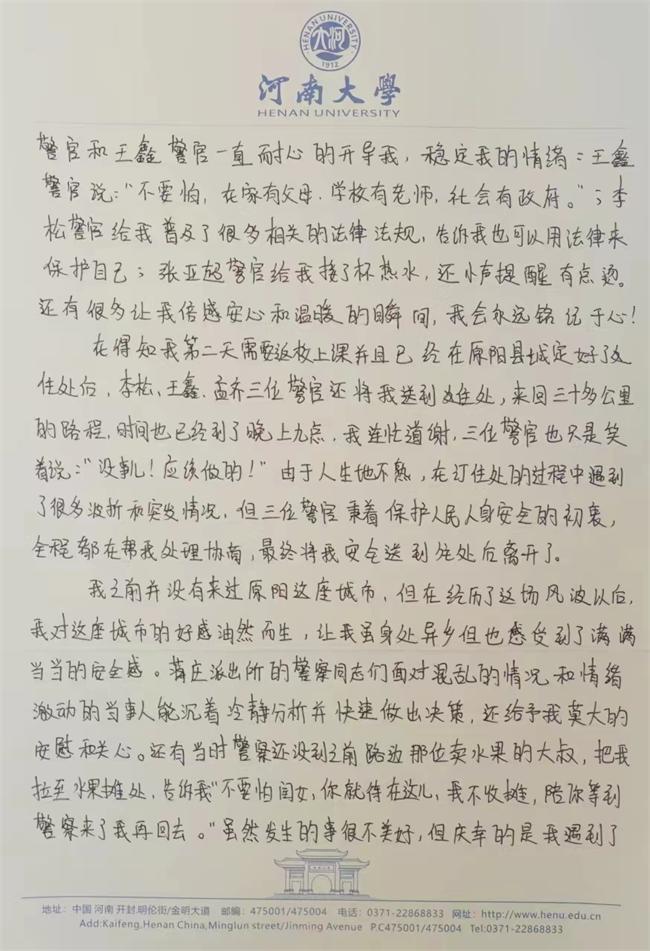 HENAN UNIVERSITY
大河
1912
河南大學
HENAN UNIVERSITY
警官和王鑫警官一直耐心的开导我，稳定我的情绪：王鑫
警官说：“不要怕，在家有父母，学校有老师，社会有政府。”；李
松警官给我普及了很多相关的法律法规，告诉我也可以用法律来
保护自己；张亚超警官给我接了杯热水，还小声提醒有点烫。
还有很多让我倍感安心和温暖的瞬间，我会永远铭记于心！
在得知我第二天需要返校上课并且已经在原阳县城定好了
住处后，李松、王鑫、孟齐三位警官还将我送到住处，来回三十多公里
的路程，时间也已经到了晚上九点，我连忙道谢，三位警官也只是笑
着说：“没事儿！应该做的！”由于人生地不熟，在订住处的过程中遇到
了很多波折和突发情况，但三位警官秉着保护人民人身安全的初衷，
全程都在帮我处理协商，最终将我安全送到住处后离开了。
我之前并没有来过原阳这座城市，但在经历了这场风波以后，
我对这座城市的好感油然而生，让我虽身处异乡但也感受到了满满
当当的安全感。蒋庄派出所的警察同志们面对混乱的情况和情绪
激动的当事人能沉着冷静分析并快速做出决策，还给予我莫大的
安慰和关心。还有当时警察还没到之前路边那位卖水果的大叔，把我
拉至水果摊处，告诉我“不要怕闺女，你就待在这儿，我不收摊，陪你等到
警察来了我再回去。”虽然发生的事很不美好，但庆幸的是我遇到了
地址：中国 河南 开封.明伦街/金明大道 邮编：475001/475004 电话：0371-22868833 网址：http://www.henu.edu.cn
Add:Kaifeng.Henan China,Minglun street/Jinming Avenue P.C475001/475004 Tel:0371-22868833